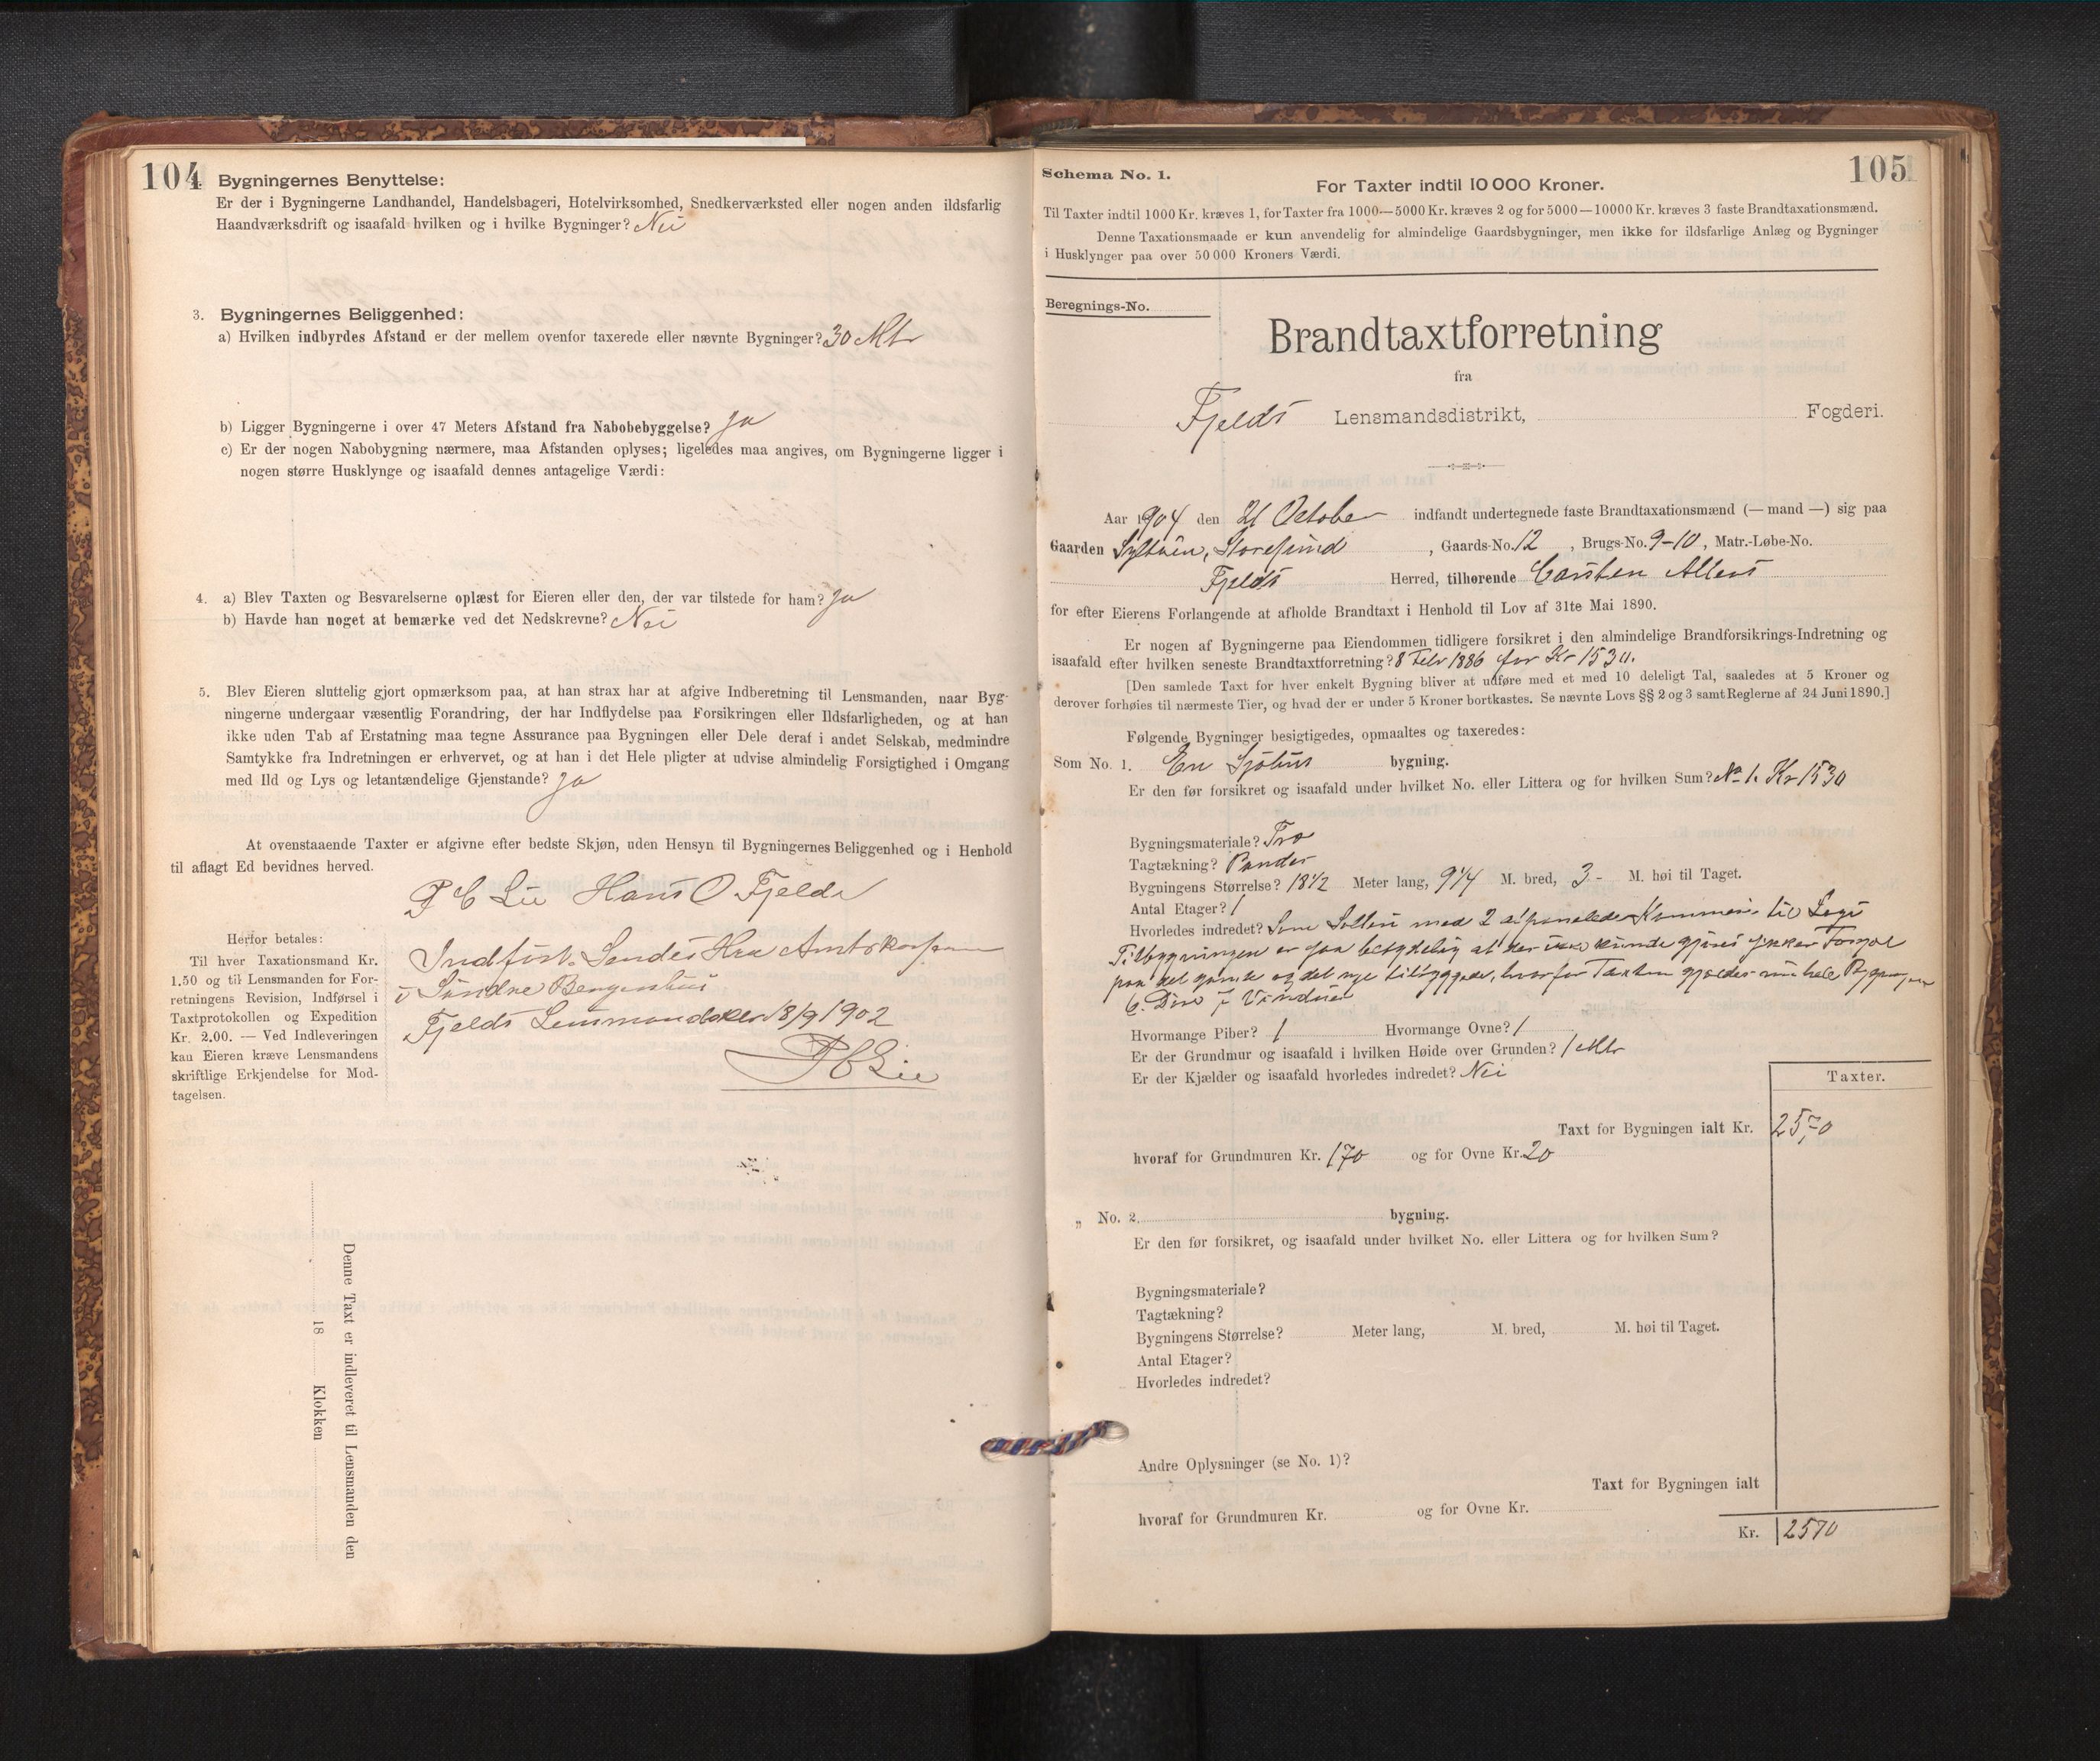 104
Bygningernes Benyttelse:
Er der i Bygningerne Landhandel, Handelsbageri, Hotelvirksomhed, Snedkerværksted eller nogen anden ildsfarlig
Haandværksdrift og isaafald hvilken og i hvilke Bygninger? Nei
3. Bygningernes Beliggenhed:
a) Hvilken indbyrdes Afstand er der mellem ovenfor taxerede eller nævnte Bygninger? 30 Mtr
b) Ligger Bygningerne i over 47 Meters Afstand fra Nabobebyggelse? Ja
c) Er der nogen Nabobygning nærmere, maa Afstanden oplyses; ligeledes maa angives, om Bygningerne ligger i
nogen større Husklynge og isaafald dennes antagelige Værdi:
4. a) Blev Taxten og Besvarelserne oplæst for Eieren eller den, der var tilstede for ham? Ja
b) Havde han noget at bemærke ved det Nedskrevne? Nei
5. Blev Eieren sluttelig gjort opmærksom paa, at han strax har at afgive Indberetning til Lensmanden, naar Byg-
ningerne undergaar væsentlig Forandring, der har Indflydelse paa Forsikringen eller Ildsfarligheden, og at han
ikke uden Tab af Erstatning maa tegne Assurance paa Bygningen eller Dele deraf i andet Selskab, medmindre
Samtykke fra Indretningen er erhvervet, og at han i det Hele pligter at udvise almindelig Forsigtighed i Omgang
med Ild og Lys og letantændelige Gjenstande? Ja
At ovenstaaende Taxter er afgivne efter bedste Skjøn, uden Hensyn til Bygningernes Beliggenhed og i Henbold
til aflagt Ed bevidnes herved.
P C Lie Hans O Fjelde
Herfor betales:
Til hver Taxationsmand Kr.
1.50 og til Lensmanden for For-
retningens Revision, Indførsel i
Taxtprotokollen og Expedition
Kr. 2.00. — Ved Indleveringen
kan Eieren kræve Lensmandens
skriftlige Erkjendelse for Mod-
tagelsen.
Indført. Sendes Hrr Amtskasserer
i Søndre Bergenhus
Fjelds Lensmandskr 18/9 1902
P C Lie
Denne Taxt er indleveret til Lensmanden den
18 Klokken
105
Schema No. 1.
For Taxter indtil 10 000 Kroner.
Til Taxter indtil 1000 Kr. kræves 1, for Taxter fra 1000—5000 Kr. kræves 2 og for 5000—10000 Kr. kræves 3 faste Brandtaxationsmænd.
Denne Taxationsmaade er kun anvendelig for almindelige Gaardsbygninger, men ikke for ildsfarlige Anlæg og Bygninger
i Husklynger paa over 50 000 Kroners Værdi.
Beregnings-No.
Brandtaxtforretning
fra
Fjelds Lensmandsdistrikt, Fogderi.
Aar 1904 den 21 October indfandt undertegnede faste Brandtaxationsmænd (— mand —) sig paa
Gaarden Syltøen, Storesund, Gaards-No. 12, Brugs-No. 9-10, Matr.-Løbe-No.
Fjelds Herred, tilhørende Carsten Allers
for efter Eierens Forlangende at afholde Brandtaxt i Henhold til Lov af 31te Mai 1890.
Er nogen af Bygningerne paa Eiendommen tidligere forsikret i den almindelige Brandforsikrings-Indretning og
isaafald efter hvilken seneste Brandtaxtforretning? 8 Febr 1886 for Kr 1530.
[Den samlede Taxt for hver enkelt Bygning bliver at udføre med et med 10 deleligt Tal, saaledes at 5 Kroner og
derover forhøies til nærmeste Tier, og hvad der er under 5 Kroner bortkastes. Se nævnte Lovs §§ 2 og 3 samt Reglerne af 24 Juni 1890.]
Følgende Bygninger besigtigedes, opmaaltes og taxeredes:
Som No. 1. En Sjøhus bygning.
Er den før forsikret og isaafald under hvilket No. eller Littera og for hvilken Sum? No 1. Kr 1530
Bygningsmateriale? Træ
Tagtækning? Pander
Bygningens Størrelse? 18½ Meter lang, 9¼ M. bred, 3- M. høi til Taget.
Antal Etager? 1
Hvorledes indredet? Som Salteri med 2 afpanelede Kammers til Logi
Tilbygningen er saa betydelig at der ikke kunde gjøres sikker Forskjel
paa det gamle og det nye tilbyggede, hvorfor Taxten gjælder hele Bygningen
6. Døre 7 Vinduer
Hvormange Piber? 1 Hvormange Ovne? 1
Er der Grundmur og isaafald i hvilken Høide over Grunden? 1 Mtr
Er der Kjælder og isaafald hvorledes indredet? Nei
Taxter.
Taxt for Bygningen ialt Kr. 2570
hvoraf for Grundmuren Kr. 170 og for Ovne Kr. 20
„ No. 2. bygning.
Er den før forsikret, og isaafald under hvilket No. eller Littera og for hvilken Sum?
Bygningsmateriale?
Tagtækning?
Bygningens Størrelse? Meter lang, M. bred, M. høi til Taget.
Antal Etager?
Hvorledes indredet?
Andre Oplysninger (se No. 1)?
Taxt for Bygningen ialt
hvoraf for Grundmuren Kr. og for Ovne Kr.
Kr. 2570